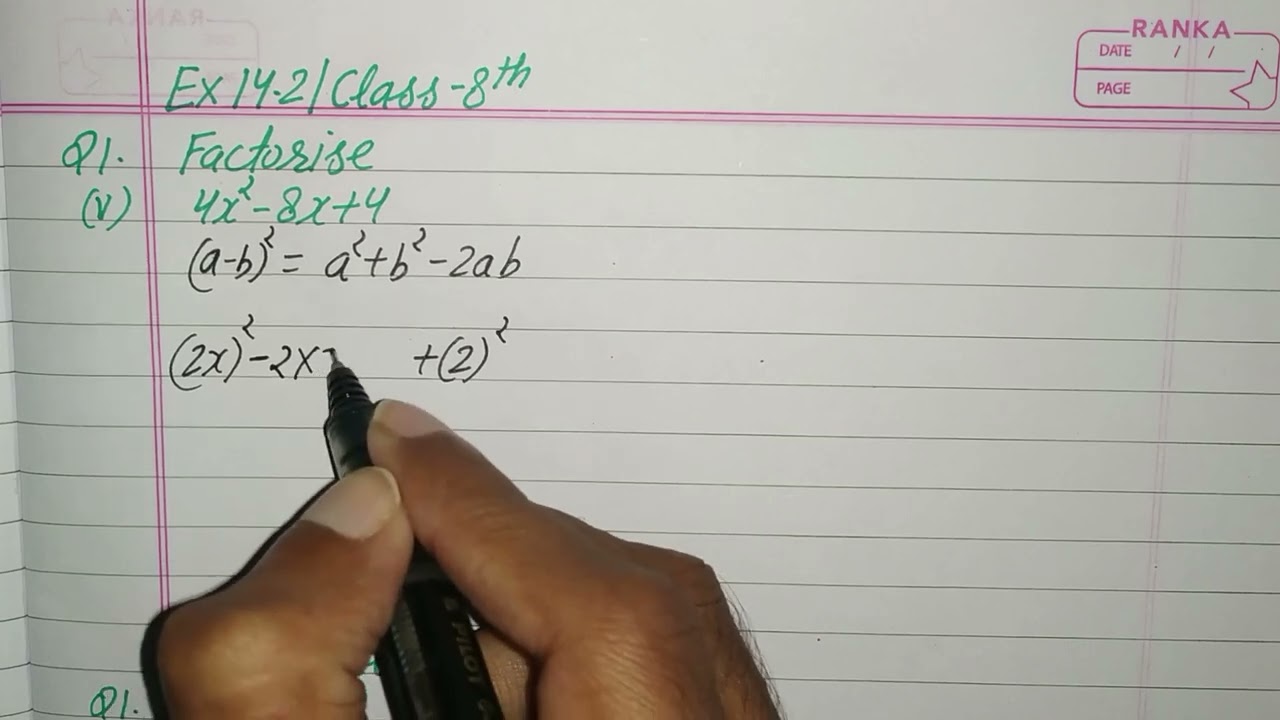 RANKA
DATE / /
PAGE
Ex 14.2/Class-8th
Q1. Factorise
(v) 4x²-8x+4
(a-b)² = a²+b²-2ab
(2x)²-2× +(2)²
Q1.